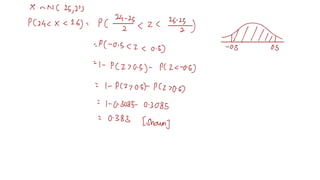 X ~ N(25, 2²)
P(24 < X < 26) = P( (24-25)/2 < Z < (26-25)/2 )
= P(-0.5 < Z < 0.5)
-0.5 0.5
= 1 - P(Z > 0.5) - P(Z < -0.5)
= 1 - P(Z > 0.5) - P(Z > 0.5)
= 1 - 0.3085 - 0.3085
= 0.383 [shown]